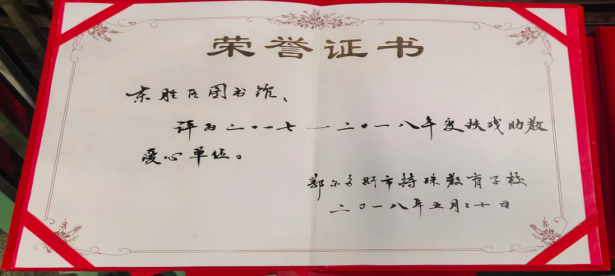 荣誉证书
东胜区图书馆、
评为二〇一七—二〇一八年度扶残助教
爱心单位。
鄂尔多斯市特殊教育学校
二〇一八年五月二十日